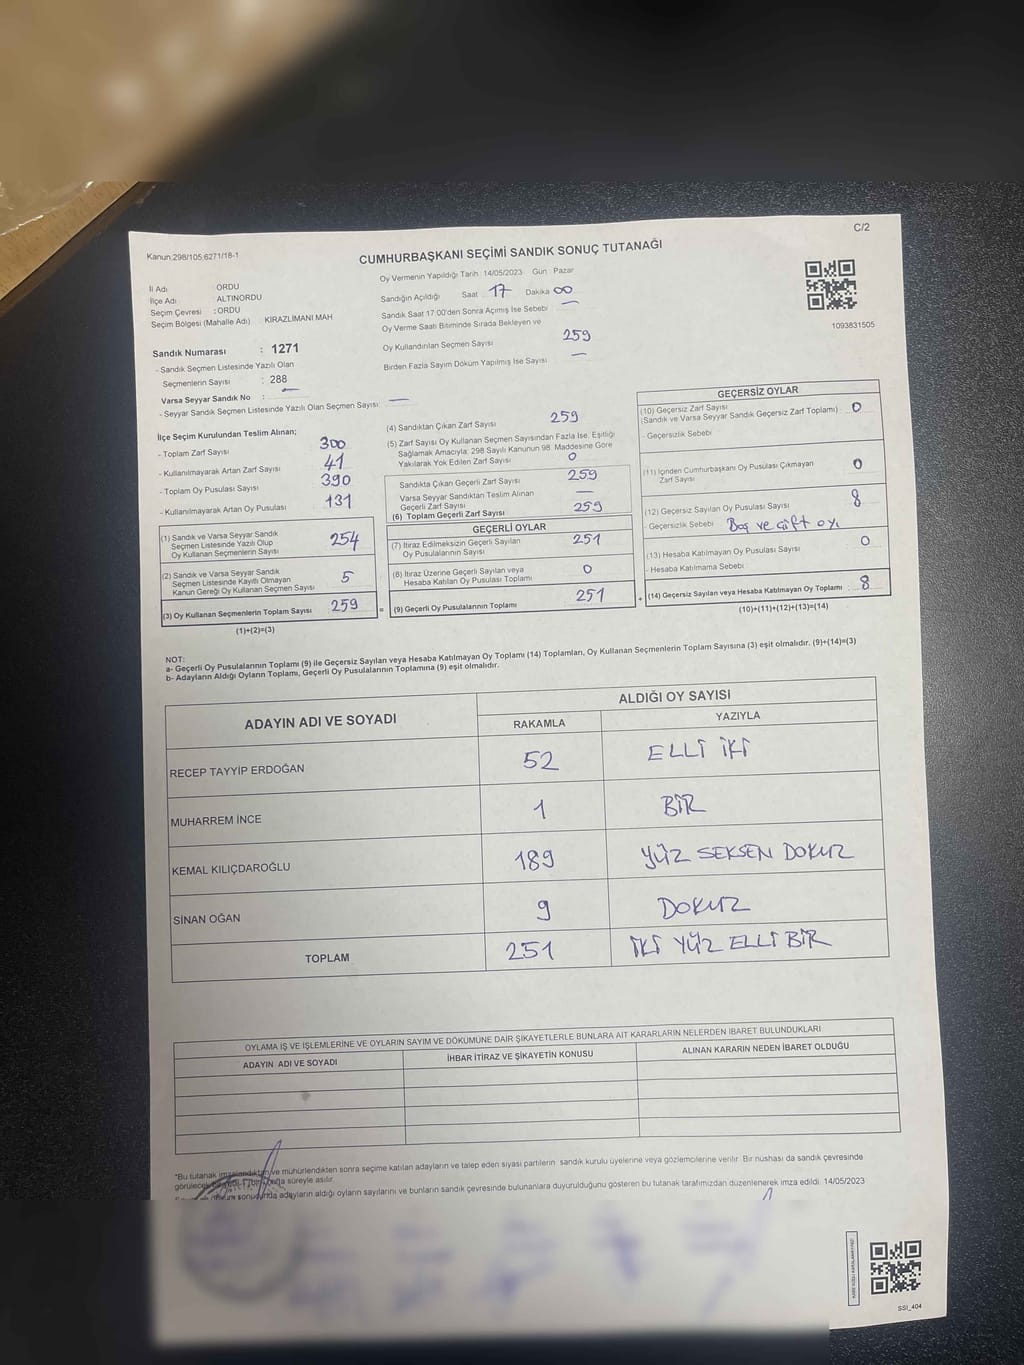 C/2
Kanun.298/105;6271/18-1
CUMHURBAŞKANI SEÇİMİ SANDIK SONUÇ TUTANAĞI
İl Adı : ORDU
İlçe Adı : ALTINORDU
Seçim Çevresi : ORDU
Seçim Bölgesi (Mahalle Adı) : KİRAZLİMANI MAH
Sandık Numarası : 1271
- Sandık Seçmen Listesinde Yazılı Olan
Seçmenlerin Sayısı : 288
Varsa Seyyar Sandık No : —
- Seyyar Sandık Seçmen Listesinde Yazılı Olan Seçmen Sayısı: —
Oy Vermenin Yapıldığı Tarih 14/05/2023 Gün Pazar
Sandığın Açıldığı Saat 17 Dakika 00
Sandık Saat 17:00'den Sonra Açımış İse Sebebi —
Oy Verme Saati Bitiminde Sırada Bekleyen ve
Oy Kullandırılan Seçmen Sayısı 259
Birden Fazla Sayım Döküm Yapılmış İse Sayısı —
1093831505
İlçe Seçim Kurulundan Teslim Alınan;
- Toplam Zarf Sayısı 300
- Kullanılmayarak Artan Zarf Sayısı 41
- Toplam Oy Pusulası Sayısı 390
- Kullanılmayarak Artan Oy Pusulası 131
(1) Sandık ve Varsa Seyyar Sandık
Seçmen Listesinde Yazılı Olup
Oy Kullanan Seçmenlerin Sayısı 254
(2) Sandık ve Varsa Seyyar Sandık
Seçmen Listesinde Kayıtlı Olmayan
Kanun Gereği Oy Kullanan Seçmen Sayısı 5
(3) Oy Kullanan Seçmenlerin Toplam Sayısı 259 =
(1)+(2)=(3)
(4) Sandıktan Çıkan Zarf Sayısı 259
(5) Zarf Sayısı Oy Kullanan Seçmen Sayısından Fazla İse, Eşitliği
Sağlamak Amacıyla; 298 Sayılı Kanunun 98. Maddesine Göre
Yakılarak Yok Edilen Zarf Sayısı 0
Sandıkta Çıkan Geçerli Zarf Sayısı 259
Varsa Seyyar Sandıktan Teslim Alınan
Geçerli Zarf Sayısı —
(6) Toplam Geçerli Zarf Sayısı 259
GEÇERLİ OYLAR
(7) İtiraz Edilmeksizin Geçerli Sayılan
Oy Pusulalarının Sayısı 251
(8) İtiraz Üzerine Geçerli Sayılan veya
Hesaba Katılan Oy Pusulası Toplamı 0
(9) Geçerli Oy Pusulalarının Toplamı 251 +
GEÇERSİZ OYLAR
(10) Geçersiz Zarf Sayısı
(Sandık ve Varsa Seyyar Sandık Geçersiz Zarf Toplamı) 0
- Geçersizlik Sebebi
(11) İçinden Cumhurbaşkanı Oy Pusulası Çıkmayan
Zarf Sayısı 0
(12) Geçersiz Sayılan Oy Pusulası Sayısı 8
- Geçersizlik Sebebi Boş ve çift oy
(13) Hesaba Katılmayan Oy Pusulası Sayısı 0
- Hesaba Katılmama Sebebi
(14) Geçersiz Sayılan veya Hesaba Katılmayan Oy Toplamı 8
(10)+(11)+(12)+(13)=(14)
NOT:
a- Geçerli Oy Pusulalarının Toplamı (9) ile Geçersiz Sayılan veya Hesaba Katılmayan Oy Toplamı (14) Toplamları, Oy Kullanan Seçmenlerin Toplam Sayısına (3) eşit olmalıdır. (9)+(14)=(3)
b- Adayların Aldığı Oyların Toplamı, Geçerli Oy Pusulalarının Toplamına (9) eşit olmalıdır.
ADAYIN ADI VE SOYADI ALDIĞI OY SAYISI
RAKAMLA YAZIYLA
RECEP TAYYİP ERDOĞAN 52 ELLİ İKİ
MUHARREM İNCE 1 BİR
KEMAL KILIÇDAROĞLU 189 YÜZ SEKSEN DOKUZ
SİNAN OĞAN 9 DOKUZ
TOPLAM 251 İKİ YÜZ ELLİ BİR
OYLAMA İŞ VE İŞLEMLERİNE VE OYLARIN SAYIM VE DÖKÜMÜNE DAİR ŞİKAYETLERLE BUNLARA AİT KARARLARIN NELERDEN İBARET BULUNDUKLARI
ADAYIN ADI VE SOYADI İHBAR İTİRAZ VE ŞİKAYETİN KONUSU ALINAN KARARIN NEDEN İBARET OLDUĞU
*Bu tutanak imzalandıktan ve mühürlendikten sonra seçime katılan adayların ve talep eden siyasi partilerin sandık kurulu üyelerine veya gözlemcilerine verilir. Bir nüshası da sandık çevresinde
süreyle asılır.
sonucunda adayların aldığı oyların sayılarını ve bunların sandık çevresinde bulunanlara duyurulduğunu gösteren bu tutanak tarafımızdan düzenlenerek imza edildi. 14/05/2023
SSI_404